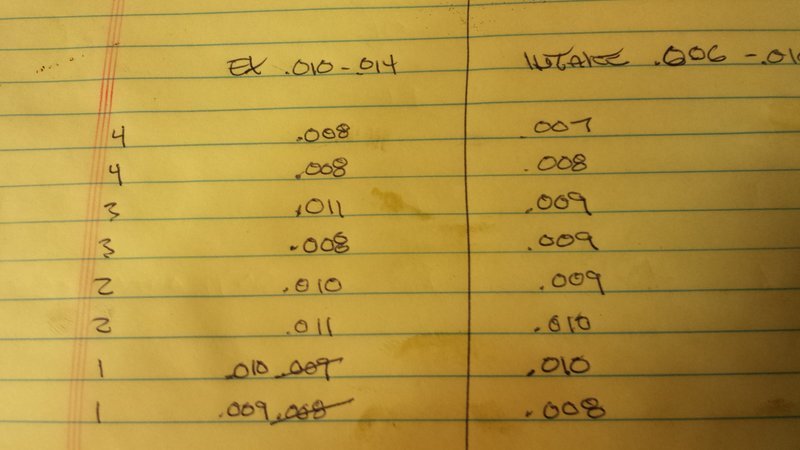 EX .010-.014 INTAKE .006 -.01
4 .008 .007
4 .008 .008
3 .011 .009
3 .008 .009
2 .010 .009
2 .011 .010
1 .010 .009 .010
1 .009 .008 .008